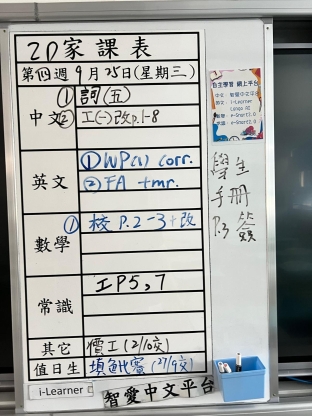 2D家課表
第四週 9月25日(星期三)
中文 ①詞(五)
②工(一)改p.1-8
英文 ①WP(1) corr.
②FA tmr.
數學 ①校P.2-3+改
常識 工P5,7
其它 價工(2/10交)
值日生 填色比賽(27/9交)
i-Learner 智愛中文平台
自主學習 網上平台
學生
手冊
P.3 簽